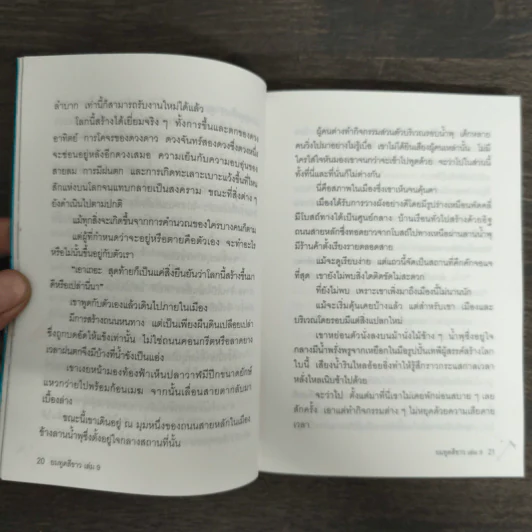 ลำบาก เท่านี้ก็สามารถรับงานใหม่ได้แล้ว
โลกนี้สร้างได้เยี่ยมจริง ๆ ทั้งการขึ้นและตกของดวง
อาทิตย์ การโคจรของดวงดาว ดวงจันทร์สองดวงซึ่งดวงหนึ่ง
จะซ่อนอยู่หลังอีกดวงเสมอ ความเย็นกับความอบอุ่นของ
สายลม การมีฝนตก และการกัดเซาะแร่ง
สักแห่งบนโลกจนแทบกลายเป็นสงคราม ขณะที่สิ่งต่าง ๆ
ยังดำเนินไปตามปกติ
แม้ทุกสิ่งจะเกิดขึ้นจากการคำนวณของใครบางคนก็ตาม
แต่ผู้ที่กำหนดว่าจะอยู่หรือตายคือตัวเอง จะทำอะไร
หรือไม่นั้นขึ้นอยู่กับตัวเรา
"เอาเถอะ สุดท้ายก็เป็นแค่สิ่งยืนยันว่าโลกนี้สร้างขึ้นมา
ดีหรือเปล่านี่นา"
เราพูดกับตัวเองแล้วเดินไปภายในเมือง
มีการสร้างถนนหนทาง แต่เป็นเพียงผืนดินเปลือยเปล่า
ซึ่งถูกบดอัดให้แข็งเท่านั้น ไม่ใช่ถนนคอนกรีตหรือลาดยาง
เวลาฝนตกจึงมีบ้างที่น้ำขังเป็นแอ่ง
เขาเงยหน้ามองท้องฟ้าเห็นปลาวาฬมีปีกขนาดยักษ์
แหวกว่ายไปพร้อมก้อนเมฆ จากนั้นเลื่อนสายตากลับมา
เบื้องล่าง
ขณะนี้เขาเดินอยู่ ณ มุมหนึ่งของถนนสายหลักในเมือง
ข้างลานน้ำพุซึ่งตั้งอยู่ใจกลางสถานที่นั้น
20 อมยูคสีขาว เล่ม 9
ผู้คนต่างทำกิจกรรมส่วนตัวบริเวณรอบน้ำพุ เด็กหลาย
คนวิ่งไปมาอย่างไม่รู้เบื่อ เขาไม่ได้ยินเสียงผู้คนเหล่านั้น ไม่มี
ใครใส่ใจหันมองเขาจนกว่าจะเข้าไปพูดด้วย จะว่าไปในด้านนี้
ทั้งที่นี่และที่นั่นก็ไม่ต่างกัน
นี่คือสภาพในเมืองซึ่งเขาเห็นจนคุ้นตา
เมืองได้รับการวางผังอย่างดีโดยมีรูปร่างเหมือนพัดคลี่
มีโบสถ์ทางใต้เป็นศูนย์กลาง บ้านเรือนทั่วไปสร้างด้วยอิฐ
ถนนสายหลักซึ่งทอดยาวจากโบสถ์ไปทางเหนือผ่านลานน้ำพุ
มีร้านค้าตั้งเรียงรายตลอดสาย
แม้จะดูเรียบง่าย แต่แถวนี้จัดเป็นสถานที่คึกคักจอแจ
ที่สุด เขายังไม่พบสิ่งใดติดขัดไม่สะดวก
ที่ยังไม่พบ เพราะเขาเพิ่งมาถึงเมืองนี้ไม่นานนัก
แม้จะเริ่มคุ้นเคยบ้างแล้ว แต่สำหรับเขา เมืองและ
บริเวณโดยรอบมีแต่สิ่งแปลกใหม่
เขาหย่อนตัวนั่งลงบนม้านั่งไม้ข้าง ๆ น้ำพุซึ่งอยู่ใจ
กลางมีน้ำพรั่งพรูจากเหยือกในมือรูปปั้นเทพีผู้สรรค์สร้างโลก
ใบนี้ เสียงน้ำรินไหลอ้อยอิ่งทำให้รู้สึกราวกระแสกาลเวลา
หลั่งไหลเนิบช้าไปด้วย
จะว่าไป ตั้งแต่มาที่นี่เขาไม่เคยพักผ่อนสบาย ๆ เลย
สักครั้ง เอาแต่ทำกิจกรรมต่าง ๆ ไม่หยุดด้วยความเสียดาย
เวลา
อมยูคสีขาว เล่ม 9 21